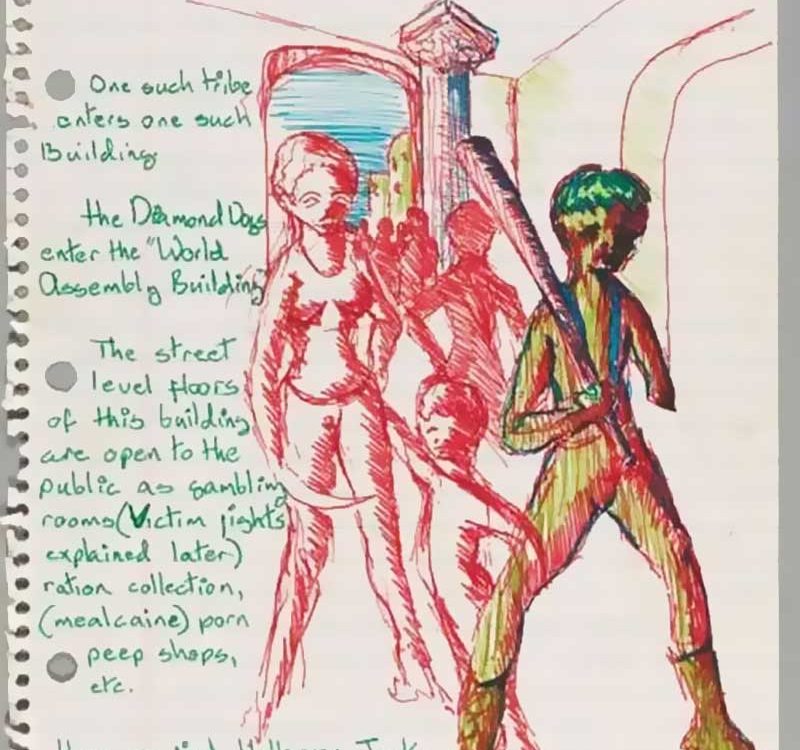 One such tribe
enters one such
Building
the Diamond Dogs
enter the "World
Assembly Building"
The street
level floors
of this building
are open to the
public as gambling
rooms (Victim fights
explained later)
ration collection,
(mealcaine) porn
peep shops,
etc.